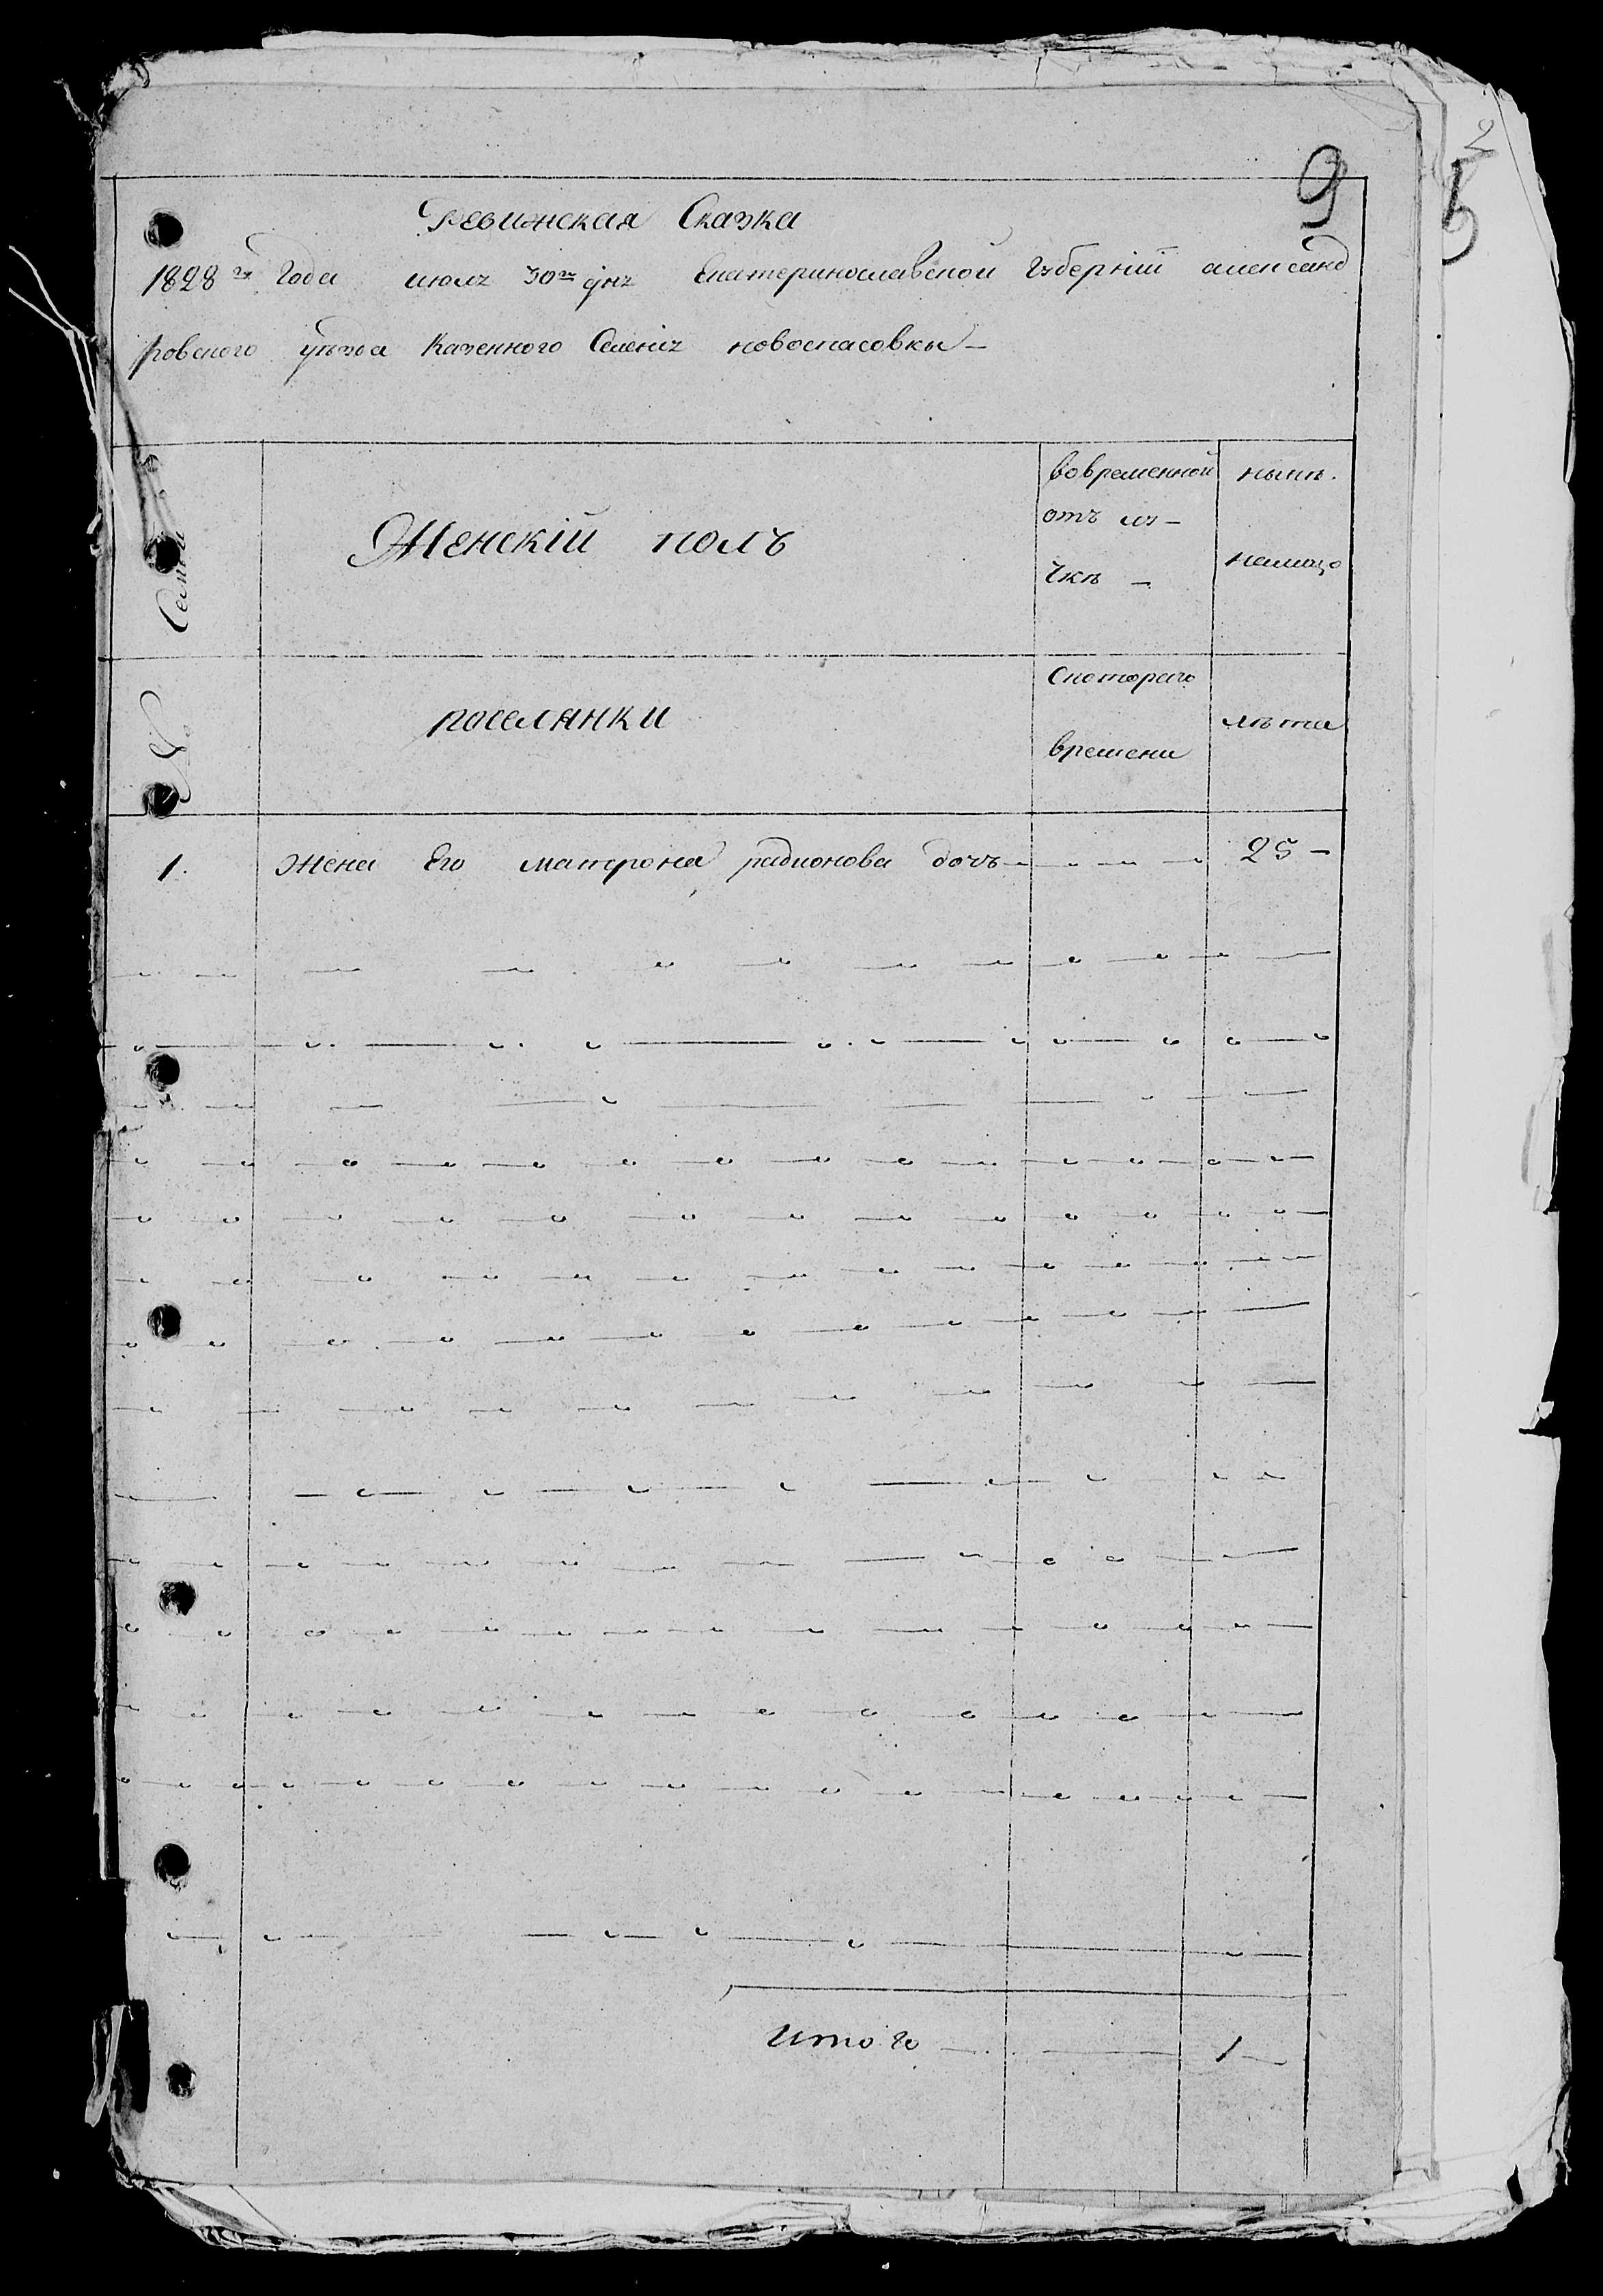 9
2
5
Ревижская Сказка
1828го Года июля 30го дня Екатеринославской Губерніи александ
ровского уѣзда Казенного Селенія новоспасовки —
№ Семьи
Женскій полъ
вовременной
отъ лу —
чкѣ —
нынѣ.
налицо
поселянки
Скотораго
времени
лѣта
1. Жена Его матрона радионова дочь — 25 —
итого — 1 —